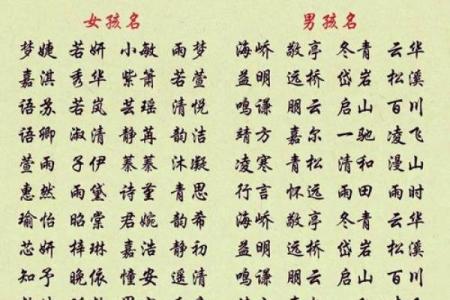 女孩名 男孩名
梦婕 若妍 小敏 雨梦 海峤 敬亭 冬青 云华
嘉淇 秀华 紫箫 若萱 益明 远桥 岱岩 松溪
语苏 若岚 芸瑶 清悦 鸣谦 朋云 启山 百川
语卿 淑清 静苒 韵洁 靖方 嘉尔 一驰 凌飞
萱雨 子伊 慕慕 沐凝 凌寒 青松 清和 漫山
惠然 雨黛 诗堇 青思 行言 怀远 雨田 雨时
瑜怡 昭棠 君婉 韵希 海峤 敬亭 冬青 云华
芯妍 梓琳 嘉浩 静初 益明 远桥 岱岩 松溪
知予 晚依 憧安 遥清 鸣谦 朋云 启山 百川